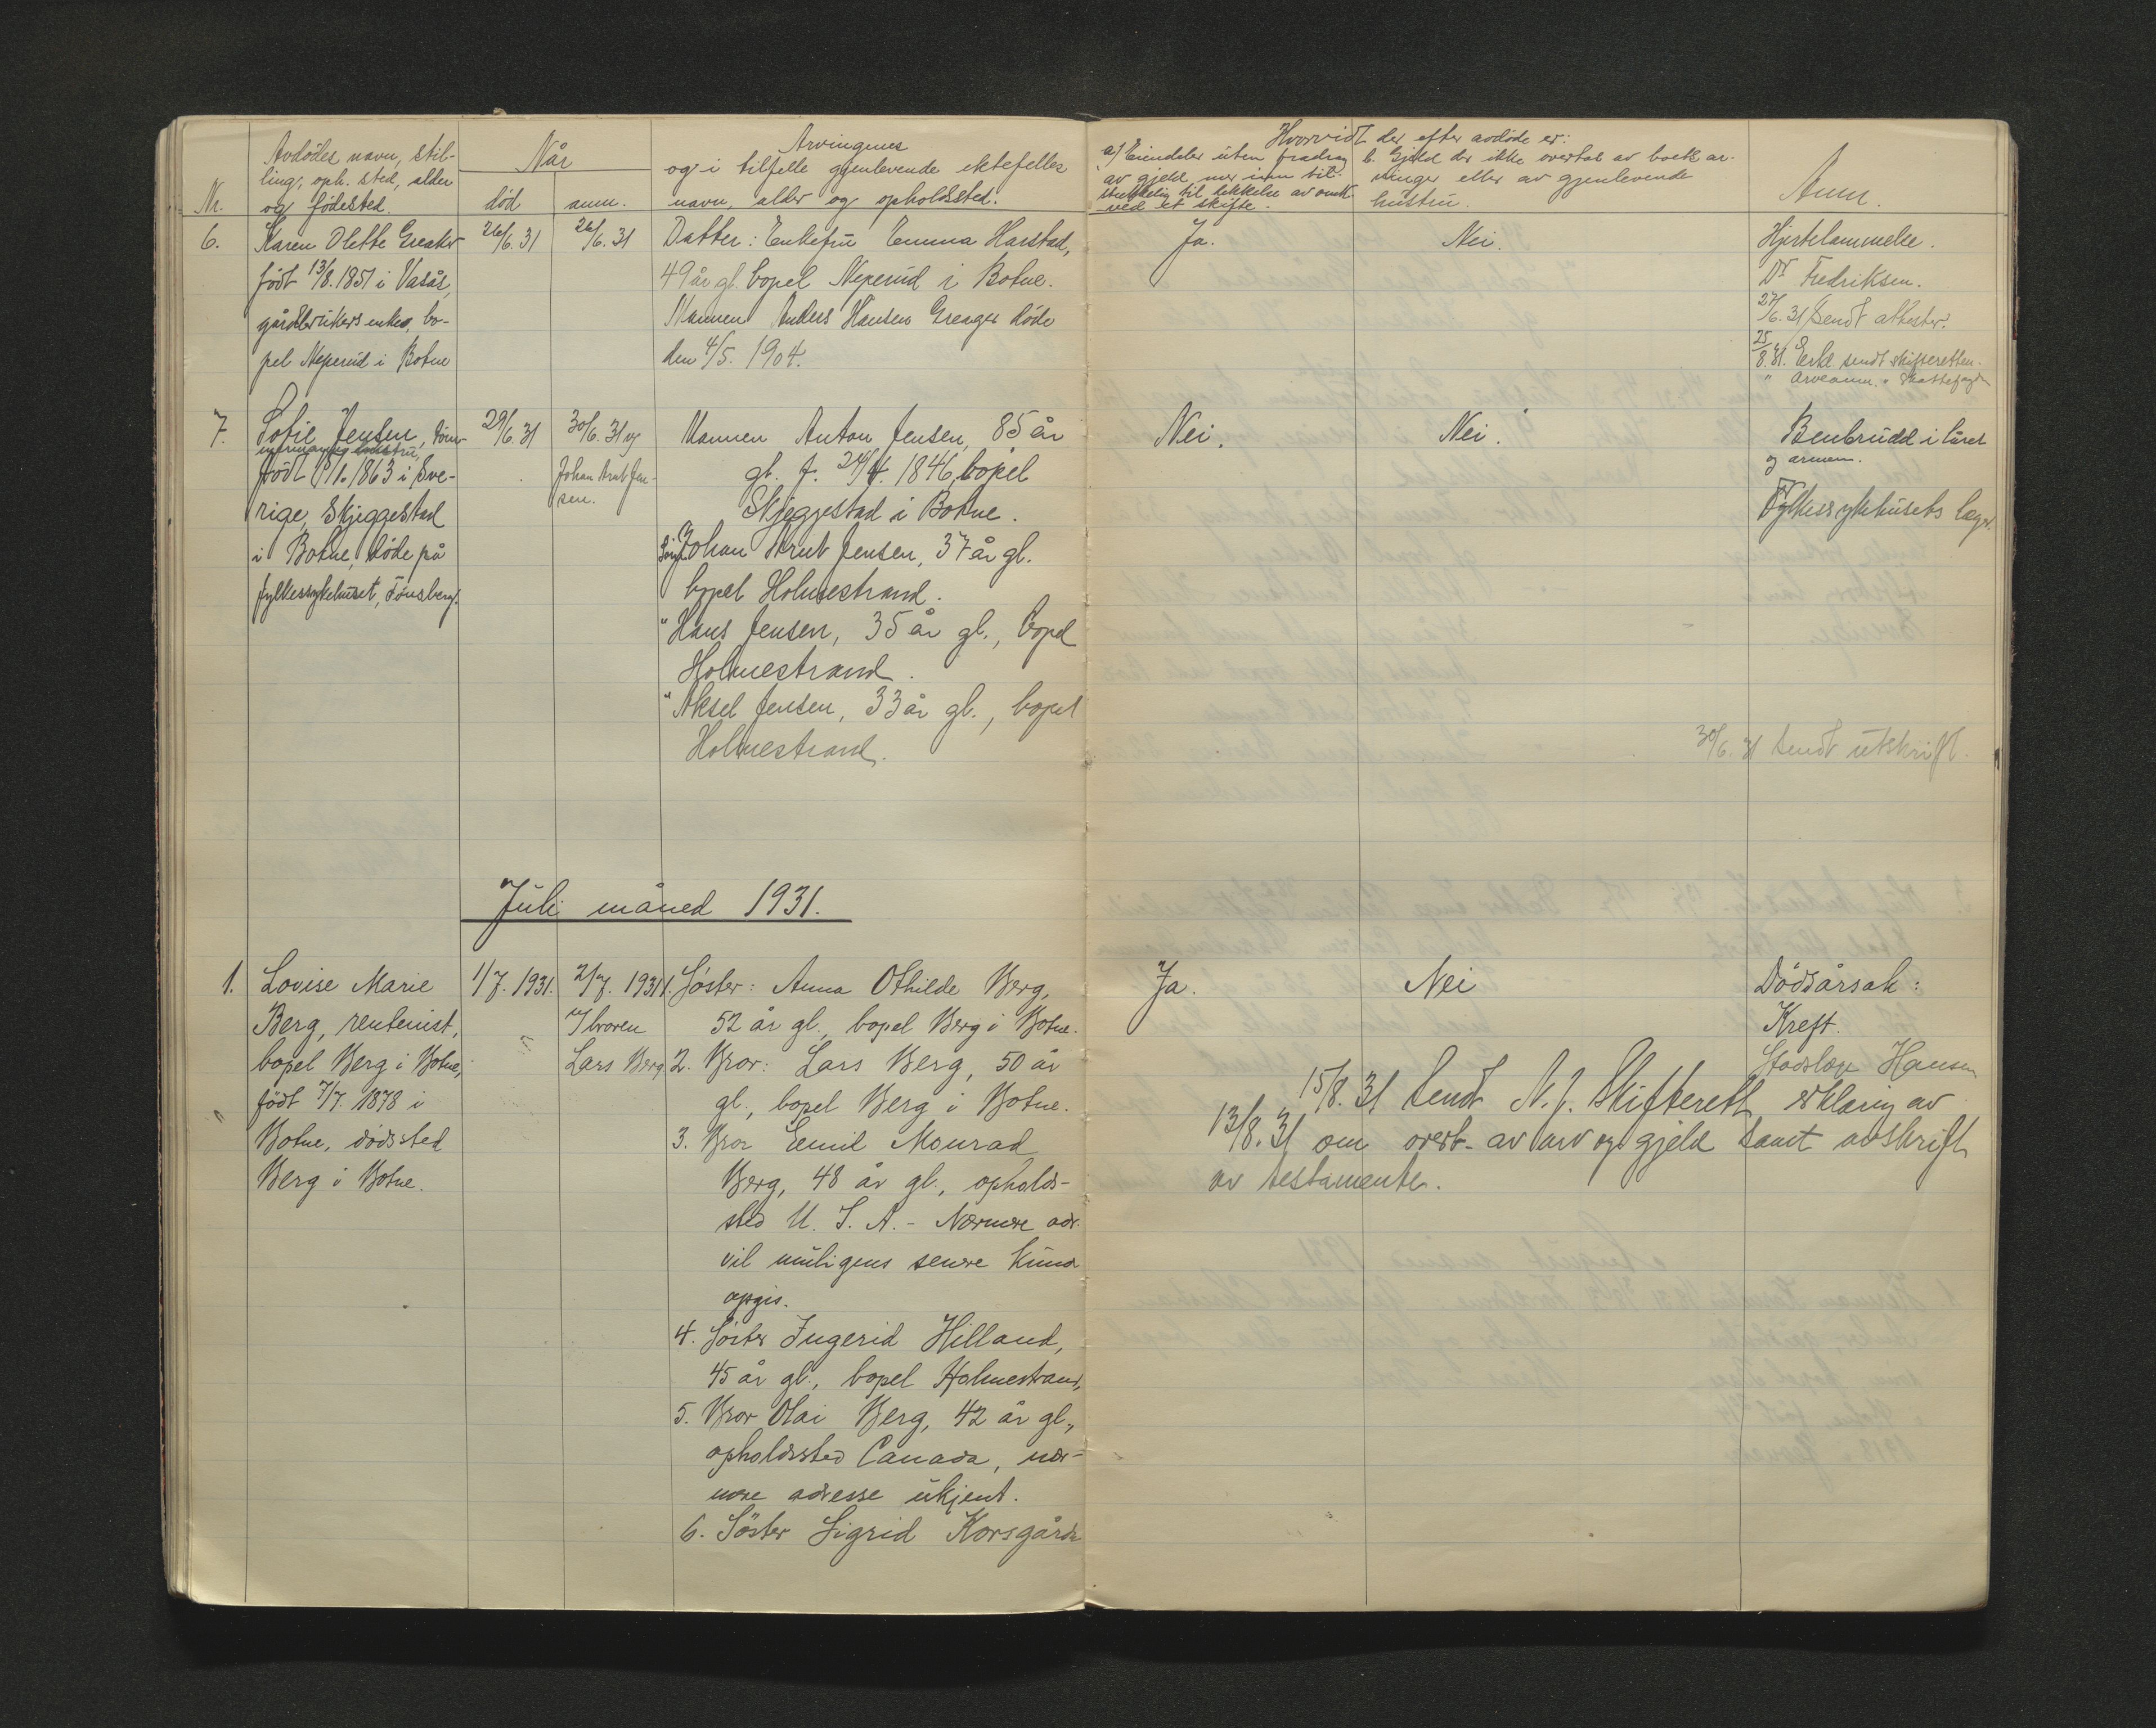 Nr.
Avdödes navn, stil-
ling, oph. sted, alder
og födested.
Når
död
anm.
Arvingenes
og i tilfelle gjenlevende ektefelles
navn, alder og opholdssted.
Hvorvidt der efter avdöde er:
a) Eiendeler uten fradrag
av gjeld, mer enn til-
strekkelig til dekkelse av omk.
ved et skifte.
b. Gjeld der ikke overtas av boets ar-
vinger eller av gjenlevende
hustru.
Anm.
6.
Karen Olette Greaker
födt 13/8. 1851 i Vasås,
gårdbrukers enke, bo-
pel Neperud i Botne
26/6. 31
26/6. 31
Datter: Enkefru Emma Harstad,
49 år gl. bopel Neperud i Botne.
Mannen Anders Hansen Greager döde
den 4/5. 1904.
Ja.
Nei.
Hjertelammelse.
Dr Fredriksen.
27/6. 31 Sendt attester.
25/8. 31. Erkl. sendt skifteretten.
" Arveanm. " Skattefogden
7.
Sofie Jensen,
hustru,
födt 1863 i Sve-
rige, Skjeggestad
i Botne, döde på
fylkessykehuset, Tönsberg.
29/6. 31
30/6. 31 av
Johan Arnt Jen-
sen.
Mannen Anton Jensen, 85 år
gl. f. 24/4. 1846, bopel
Skjeggestad i Botne.
Sön: Johan Arnt Jensen, 37 år gl.
bopel Holmestrand.
" Hans Jensen, 35 år gl., bopel
Holmestrand.
" Aksel Jensen, 33 år gl., bopel
Holmestrand.
Nei.
Nei.
Benbrudd i låret
og armen.
Fylkessykehusets læger.
30/6. 31 Sendt utskrift.
Juli måned 1931.
1.
Lovise Marie
Berg, rentenist,
bopel Berg i Botne,
födt 7/7. 1878 i
Botne, dödssted
Berg i Botne.
1/7. 1931.
2/7. 1931
av broren
Lars Berg
1. Söster: Anna Othilde Berg,
52 år gl., bopel Berg i Botne.
2. Bror: Lars Berg, 50 år
gl., bopel Berg i Botne.
3. Bror Emil Monrad
Berg, 48 år gl., opholds-
sted U. S. A. - Nærmere adr.
vil muligens senere kunne
opgis.
4. Söster Ingerid Hilland,
45 år gl., bopel Holmestrand,
5. Bror Olai Berg, 42 år gl.,
opholdssted Canada, nær-
mere adresse ukjent.
6. Söster Sigrid Korsgården
Ja.
Nei
Dödsårsak:
Kreft.
Stadslæge Hansen
15/8. 31 Sendt N. J. Skifterett, erklæring av
13/8. 31 om overt. av arv og gjeld samt avskrift
av testamente.